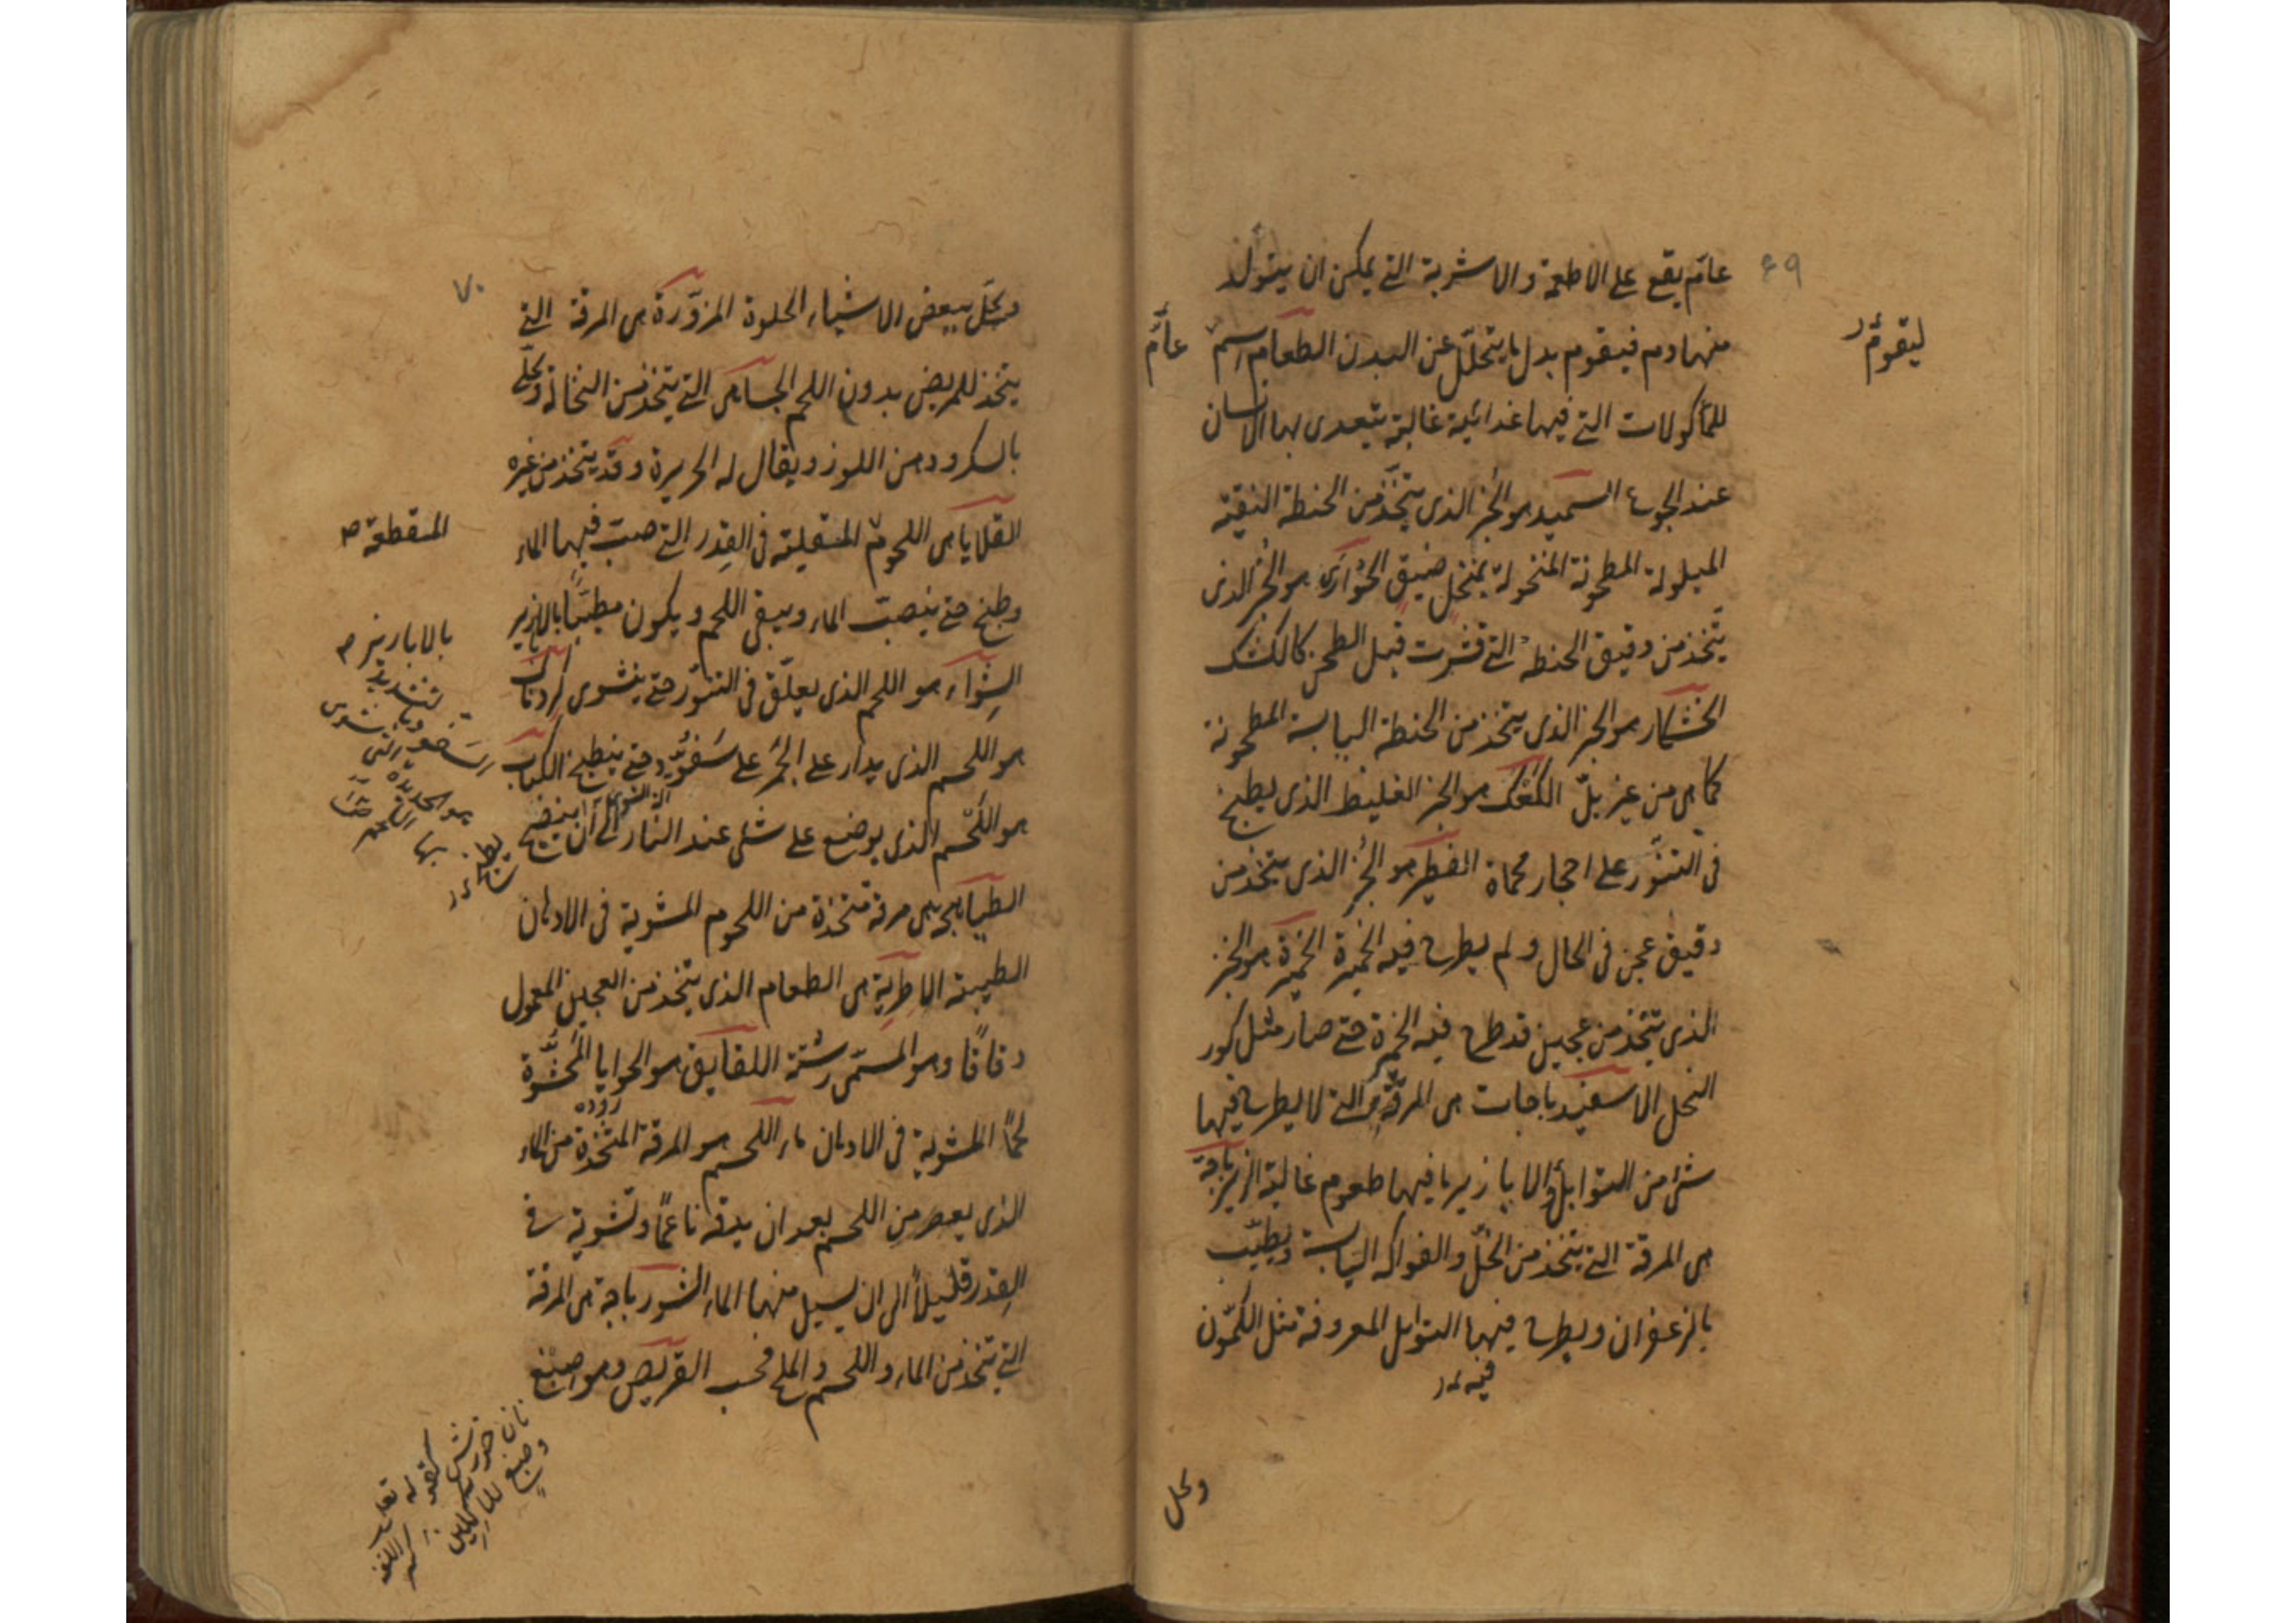 ۶۹
عامّ يقع على الاطعمة والاشربة التي يمكن ان يتولّد
منها دم فيقوم بدل ما يتحلّل عن البدن الطعام اسم عامّ
ليقوم
للمأكولات التي فيها غدائية غالبة يتعدى بها الانسان
عند الجوع السميد هو الخبز الذي يتخذ من الحنطة النقية
المبلولة المطحونة المنخولة بمنخل ضيق الحوارى هو الخبز الذى
يتخذ من دقيق الحنطة التي قشرت قبل الطحن كالكشك
الخشكار هو الخبز الذي يتخذ من الحنطة اليابسة المطحونة
كما هى من غير بلّ الكعك هو الخبز الغليظ الذى يطبخ
فى التنّور على احجار محماة الفطير هو الخبز الذى يتخذ من
دقيق عجن فى الحال ولم يطرح فيه الخميرة الخميرة هو الخبز
الذى يتخذ من عجين قد طرح فيه الخمرة حتى صار مثل كور
النحل الاسفيدباجات هى المرقة التي لا يطرح فيها
شئ من التوابل والابازير ما فيها طعوم غالبة الزيرباجة
هى المرقة التي يتخذ من الخلّ والفواكه اليابسة ويطيّب
بالزعفران ويطرح فيها التوابل المعروفة مثل الكمّون
فيه
وحل
۷۰
ويحلّ ببعض الاشياء الحلوة المزوّرة هى المرقة التي
يتخذ للمريض بدون اللحم الحسا هى التي يتخذ من النخالة وتحلّى
بالسكر ودهن اللوز ويقال له الحريرة وقد يتخذ من غيره
القلايا هى اللحوم المنقلية فى القدر التي صبت فيها الماء
المنقطعة
وطبخ حتى ينصبّ الماء ويبقى اللحم ويكون مطيّبا بالابازير
بالابازير
الشواء هو اللحم الذى يعلّق فى التنّور حتى ينشوى الردناك
هو اللحم الذى يدار على الجمر على سفّود حتى ينطبخ الكباب
هو اللحم الذى يوضع على شئ عند النار الى ان ينضج
السفود بالتشديد
هو الحديدة التى يشوى
بها اللحم
الطباهجة هى مرقة متخذة من اللحوم المشوية فى الادهان
الطيبة الاطرية هى الطعام الذى يتخذ من العجين المعمول
دقاقا وهو المسمّى رشتة اللقانق هو الحوايا المحشوّة
روده
لحمًا المشوية فى الادهان ماء اللحم هو المرقة المتخذة من الماء
الذى يعصر من اللحم بعد ان يدقه ناعمًا وتشوية فى
القدر قليلًا الى ان يسيل منها الماء الشورباجة هى المرقة
التي يتخذ من الماء واللحم والملح فحسب القريص وهو صبغ
نان خورش كقوله تعالى
وصبغ للاكلين